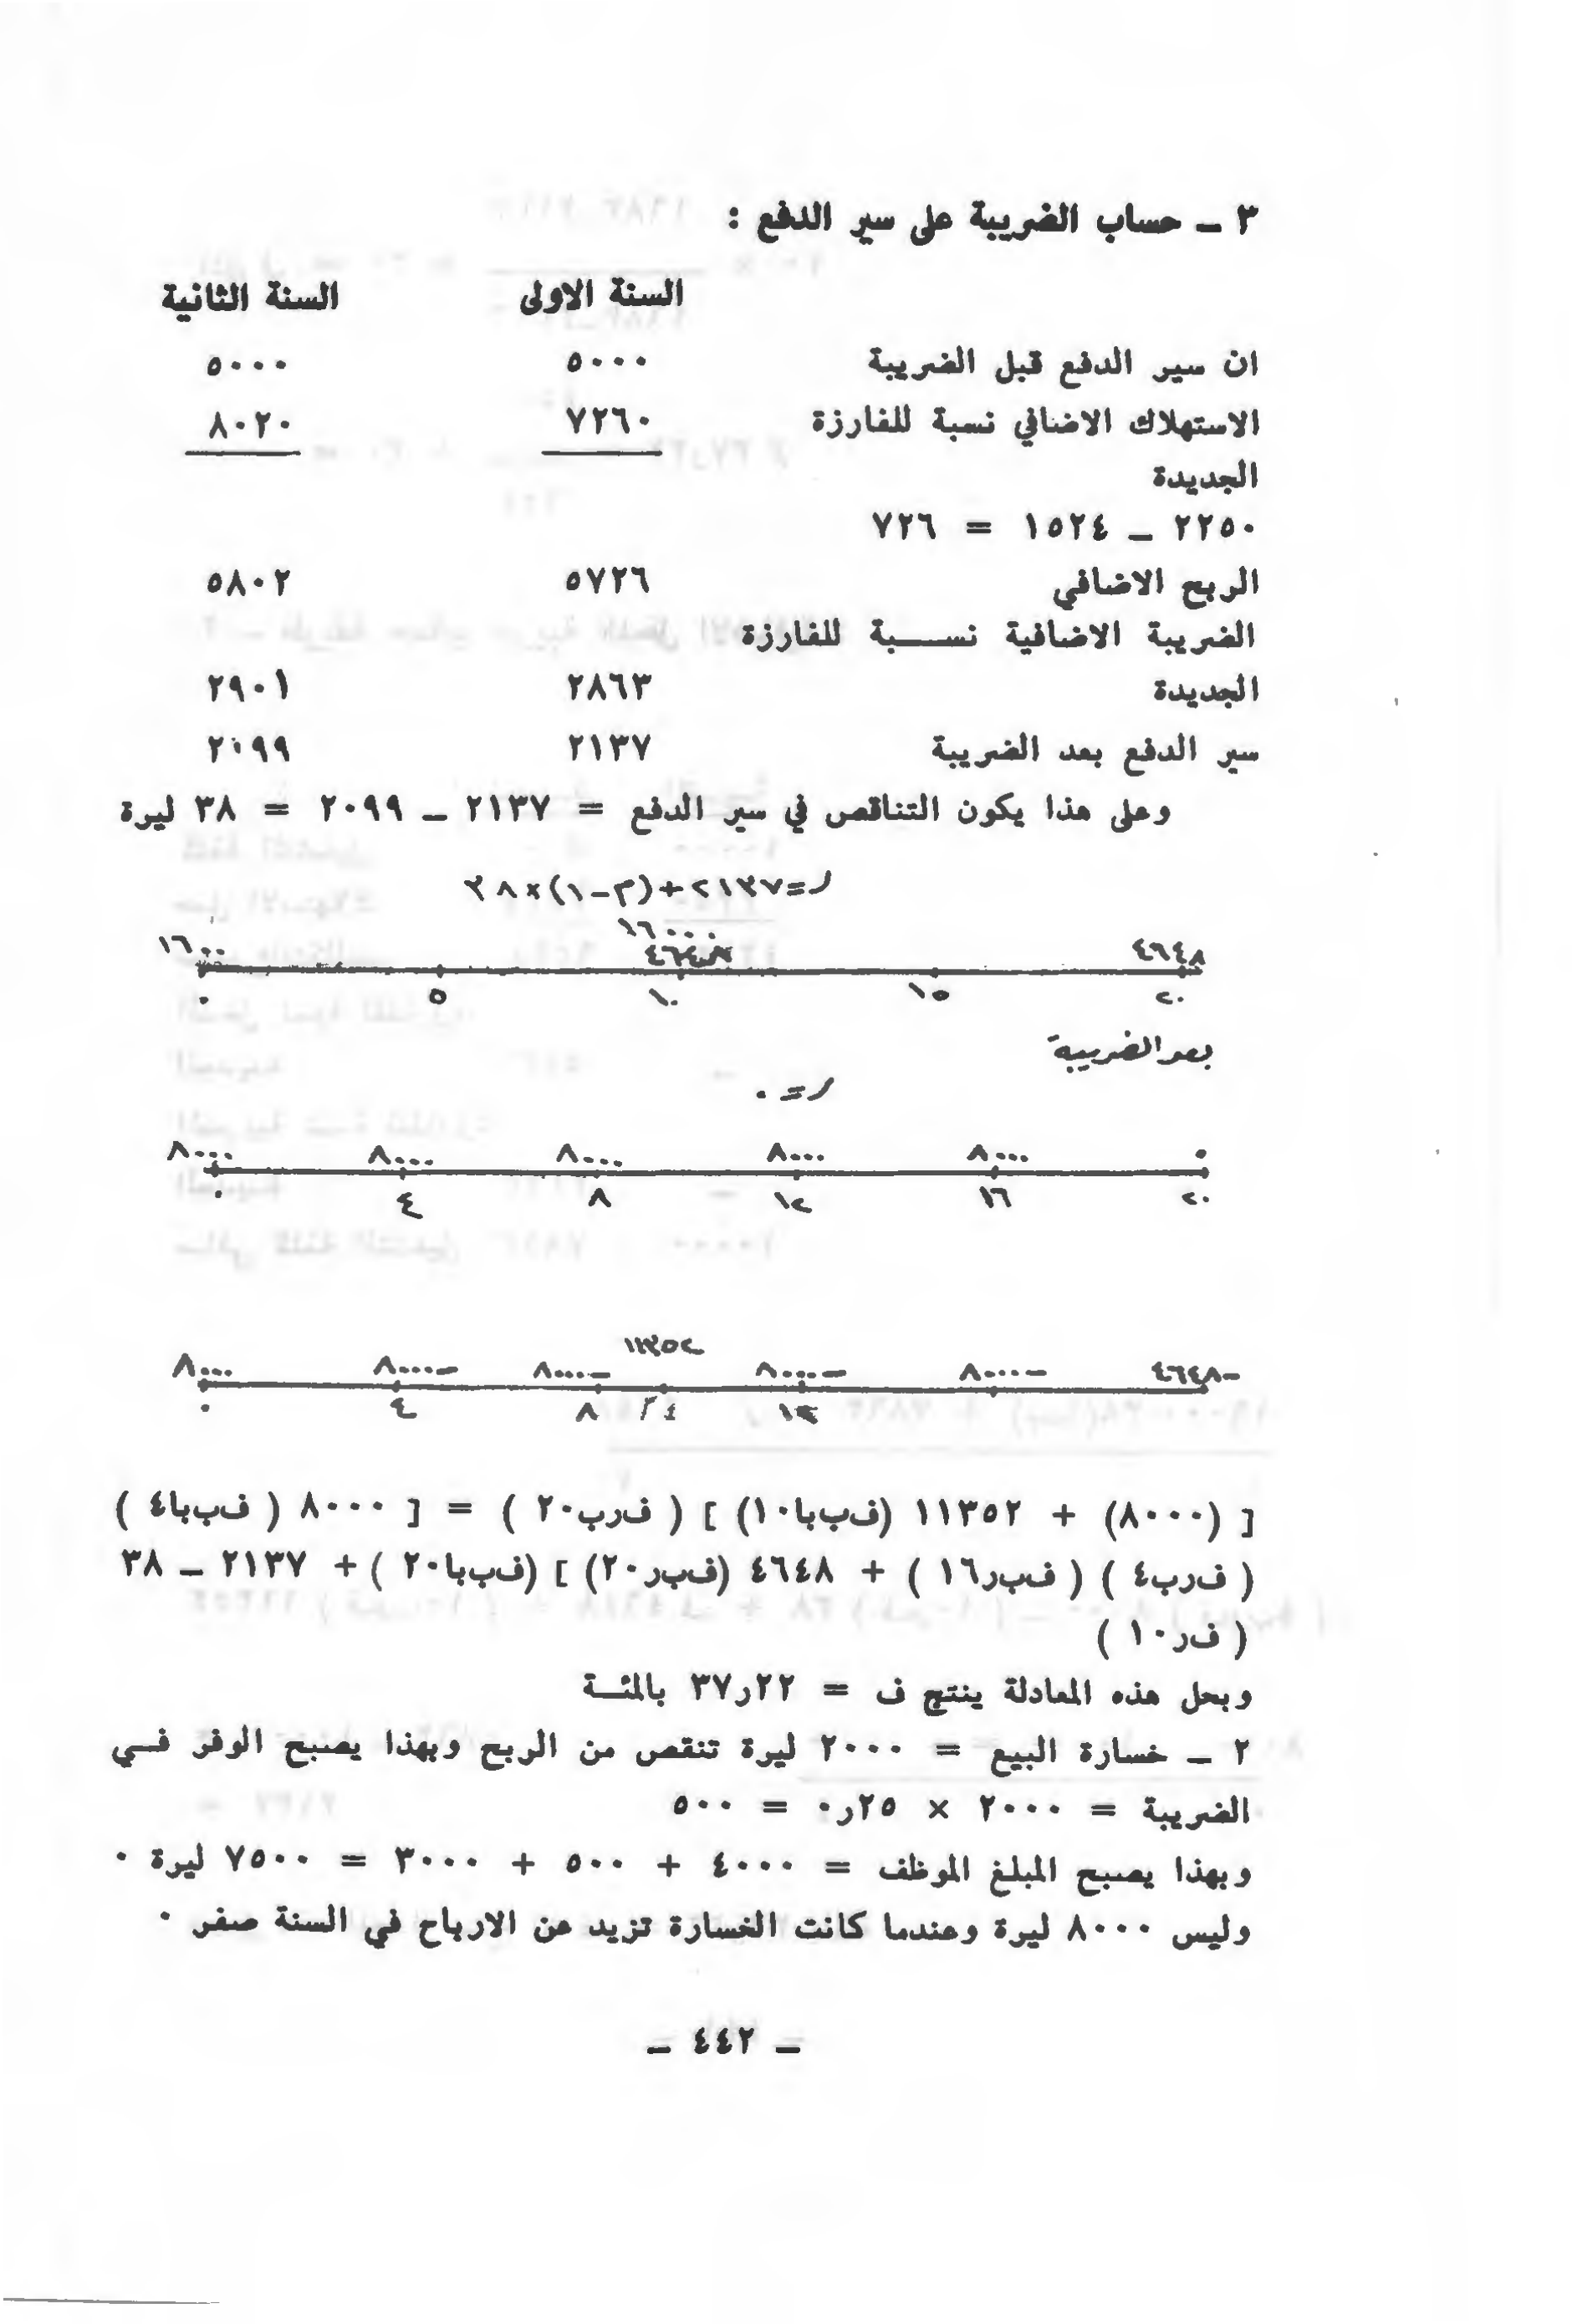 ٣ ـ حساب الضريبة على سير الدفع :
السنة الاولى السنة الثانية
ان سير الدفع قبل الضريبة ٥٠٠٠ ٥٠٠٠
الاستهلاك الاضافي نسبة للفارزة ٧٢٦٠ ٨٠٢٠
الجديدة
٢٢٥٠ ـ ١٥٢٤ = ٧٢٦
الربح الاضافي ٥٧٢٦ ٥٨٠٢
الضريبة الاضافية نســـبة للفارزة
الجديدة ٢٨٦٣ ٢٩٠١
سير الدفع بعد الضريبة ٢١٣٧ ٢٠٩٩
وعلى هذا يكون التناقص في سير الدفع = ٢١٣٧ ـ ٢٠٩٩ = ٣٨ ليرة
ر=٢١٣٧+(م-١)×٣٨
١٦٠٠٠ ١٦٠٠٠ ٤٦٤٨
٠ ٥ ١٠ ١٥ ٢٠
بعد الضريبة
ر = ٠
٨٠٠٠ ٨٠٠٠ ٨٠٠٠ ٨٠٠٠ ٨٠٠٠ ٠
٠ ٤ ٨ ١٢ ١٦ ٢٠
١١٣٥٢
٨٠٠٠ ٨٠٠٠- ٨٠٠٠- ٨٠٠٠- ٨٠٠٠- ٤٦٤٨-
٠ ٤ ٨ ١٢
[ (٨٠٠٠) + ١١٣٥٢ (ف‌ب‌با١٠) ] ( ف‌رب٢٠ ) = [ ٨٠٠٠ ( ف‌ب‌با٤ )
( ف‌رب٤ ) ( ف‌ب‌ر١٦ ) + ٤٦٤٨ (ف‌ب‌ر٢٠) ] (ف‌ب‌با٢٠ ) + ٢١٣٧ ـ ٣٨
( ف‌ر١٠ )
وبحل هذه المعادلة ينتج ف = ٣٧ر٢٢ بالمئـــة
٢ ـ خسارة البيع = ٢٠٠٠ ليرة تنقص من الربح وبهذا يصبح الوفر فـــي
الضريبة = ٢٠٠٠ × ٠ر٢٥ = ٥٠٠
وبهذا يصبح المبلغ الموظف = ٤٠٠٠ + ٥٠٠ + ٣٠٠٠ = ٧٥٠٠ ليرة ٠
وليس ٨٠٠٠ ليرة وعندما كانت الخسارة تزيد عن الارباح في السنة صفر ٠
ـ ٤٤٢ ـ